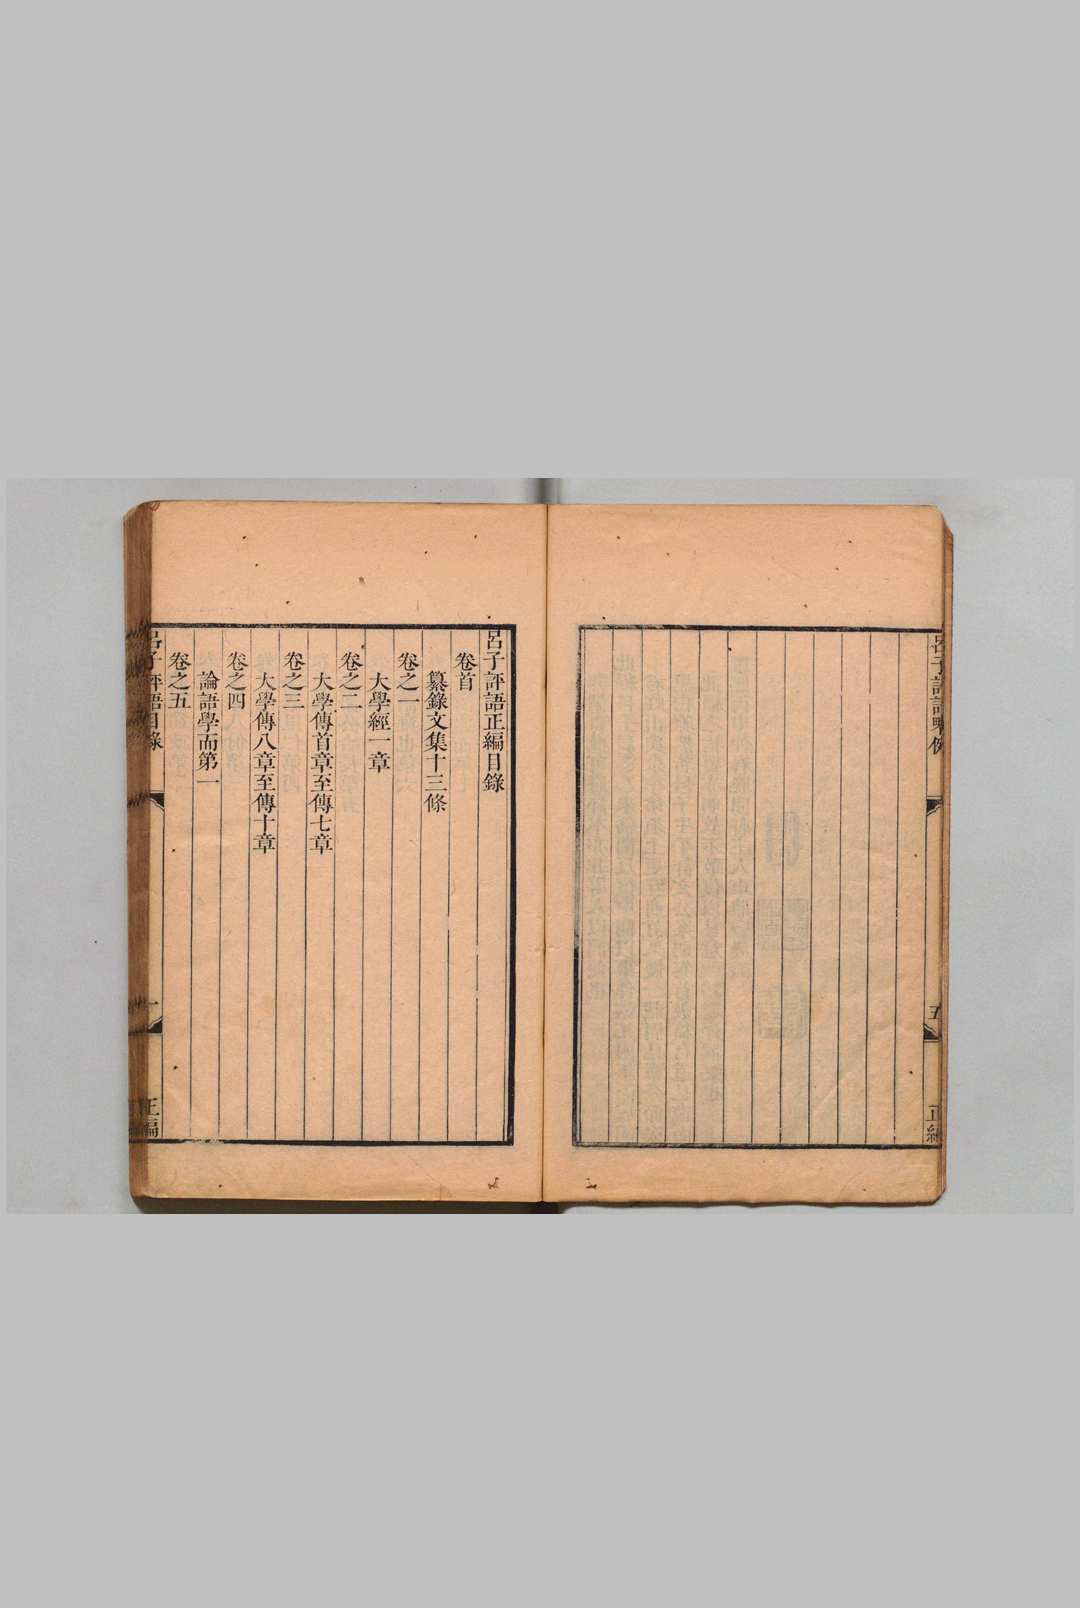 呂子評語略例
五
正編
呂子評語正編目錄
卷首
纂錄文集十三條
卷之一
大學經一章
卷之二
大學傳首章至傳七章
卷之三
大學傳八章至傳十章
卷之四
論語學而第一
卷之五
呂子評語目錄
一
正編